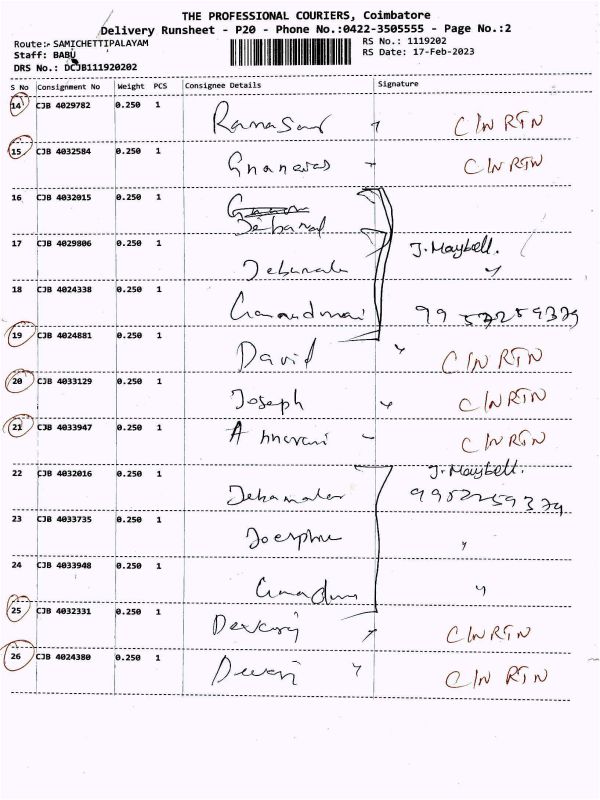 THE PROFESSIONAL COURIERS, Coimbatore
Delivery Runsheet - P20 - Phone No.:0422-3505555 - Page No.:2
Route:- SAMICHETTIPALAYAM RS No.: 1119202
Staff: BABU RS Date: 17-Feb-2023
DRS No.: DCJB111920202
S No Consignment No Weight PCS Consignee Details Signature
14 CJB 4029782 0.250 1 C/N RTN
15 CJB 4032584 0.250 1 C/N RTN
16 CJB 4032015 0.250 1
17 CJB 4029806 0.250 1 J. Maybell.
18 CJB 4024338 0.250 1
19 CJB 4024881 0.250 1 David C/N RTN
20 CJB 4033129 0.250 1 Joseph C/N RTN
21 CJB 4033947 0.250 1 C/N RTN
22 CJB 4032016 0.250 1 J. Maybell.
23 CJB 4033735 0.250 1
24 CJB 4033948 0.250 1
25 CJB 4032331 0.250 1 C/N RTN
26 CJB 4024380 0.250 1 C/N RTN